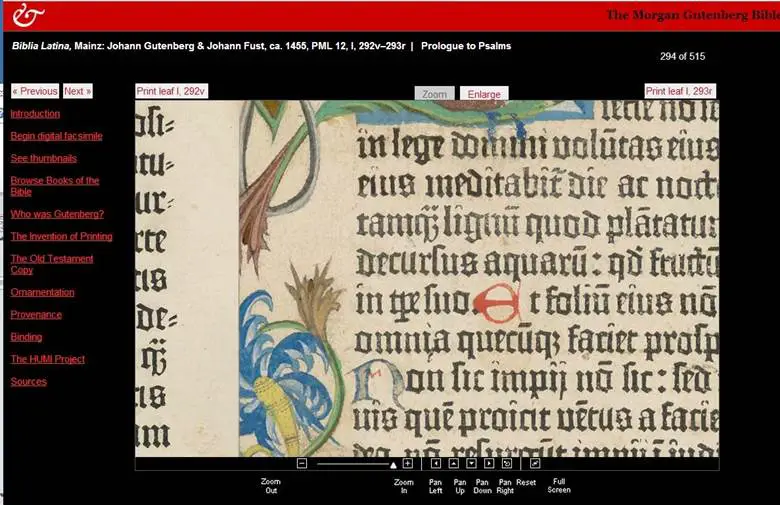 The Morgan Gutenberg Bible
Biblia Latina, Mainz: Johann Gutenberg & Johann Fust, ca. 1455, PML 12, I, 292v–293r | Prologue to Psalms
294 of 515
« Previous Next »
Print leaf I, 292v
Zoom Enlarge
Print leaf I, 293r
Introduction
Begin digital facsimile
See thumbnails
Browse Books of the
Bible
Who was Gutenberg?
The Invention of Printing
The Old Testament
Copy
Ornamentation
Provenance
Binding
The HUMI Project
Sources
in lege domini volūtas eius
eius meditabit̄ die ac noct
tamq̄ lignū quod plātatur
decursus aquarū: qd̄ fructū
in tp̄e suo. Et foliū eius nō
omnia quecūq; faciet prosp
Non sic impij nō sic: sed
uis quē proicit uētus a facie
Zoom Out
Zoom In
Pan Left
Pan Up
Pan Down
Pan Right
Reset
Full Screen